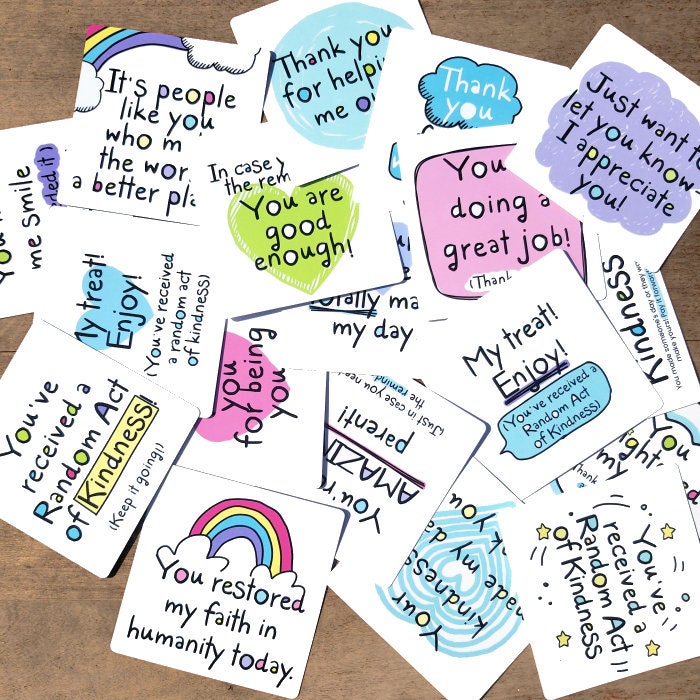 It's people
like you
who m
the wor
a better pla
Thank you
for helpi
me o
Thank
you
Just want t
let you know
I appreciate
you!
me smile
In case y
the rem
You are
good
enough!
You
doing a
great job!
(Thank
my treat!
Enjoy!
(You've received
a random act
of kindness)
tally ma
my day
My treat!
Enjoy!
(You've received a
Random Act
of Kindness)
Kindness
you made someone's day or they w
make yours! Pay it forward
You've
received a
Random Act
of Kindness!
(Keep it going!)
you
for being
you
You're
AMAZI
parent!
(Just in case you nee
the remind
You restored
my faith in
humanity today.
Your
kindness
made my da
You've
received a
Random Act
of Kindness